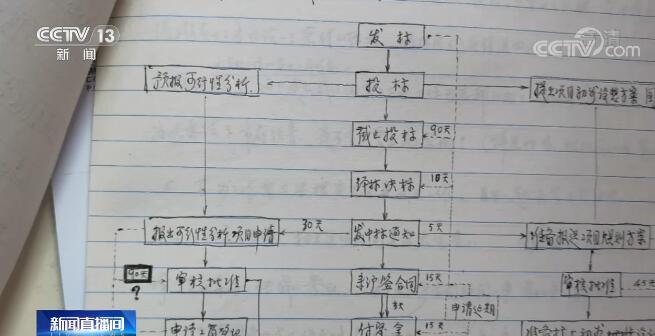 CCTV 13
新闻
CCTV.com
发标
预报可行性分析
投标
提出项目初步设想方案
截止投标
90天
评标决标
10天
报出可行性分析、项目申请
30天
发中标通知
5天
准备报送项目规划方案
90天
?
审核批准
来沪签合同
15天
审核批准
45天
5天
申请延期
付签金
15天
新闻直播间